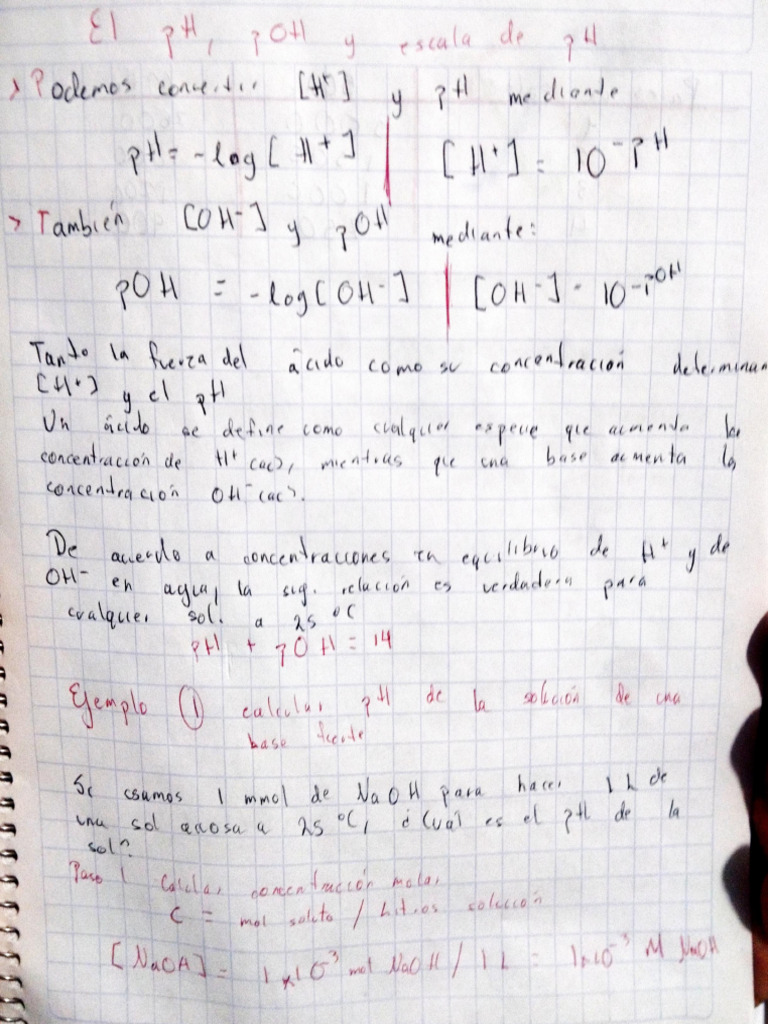 El pH, pOH y escala de pH
> Podemos convertir [H+] y pH mediante
pH = -log[H+] | [H+] = 10^-pH
> También [OH-] y pOH mediante:
pOH = -log[OH-] | [OH-] = 10^-pOH
Tanto la fuerza del ácido como su concentración determinan
[H+] y el pH
Un ácido se define como cualquier especie que aumenta la
concentración de H+(ac), mientras que una base aumenta la
concentración OH-(ac).
De acuerdo a concentraciones en equilibrio de H+ y de
OH- en agua, la sig. relación es verdadera para
cualquier sol. a 25 °C
pH + pOH = 14
Ejemplo ① calcular pH de la solución de una
base fuerte
Si usamos 1 mmol de NaOH para hacer 1 L de
una sol acuosa a 25 °C, ¿Cuál es el pH de la
sol?
Paso 1 Calcular concentración molar
C = mol soluto / Litros solución
[NaOH] = 1x10^-3 mol NaOH / 1 L = 1x10^-3 M NaOH